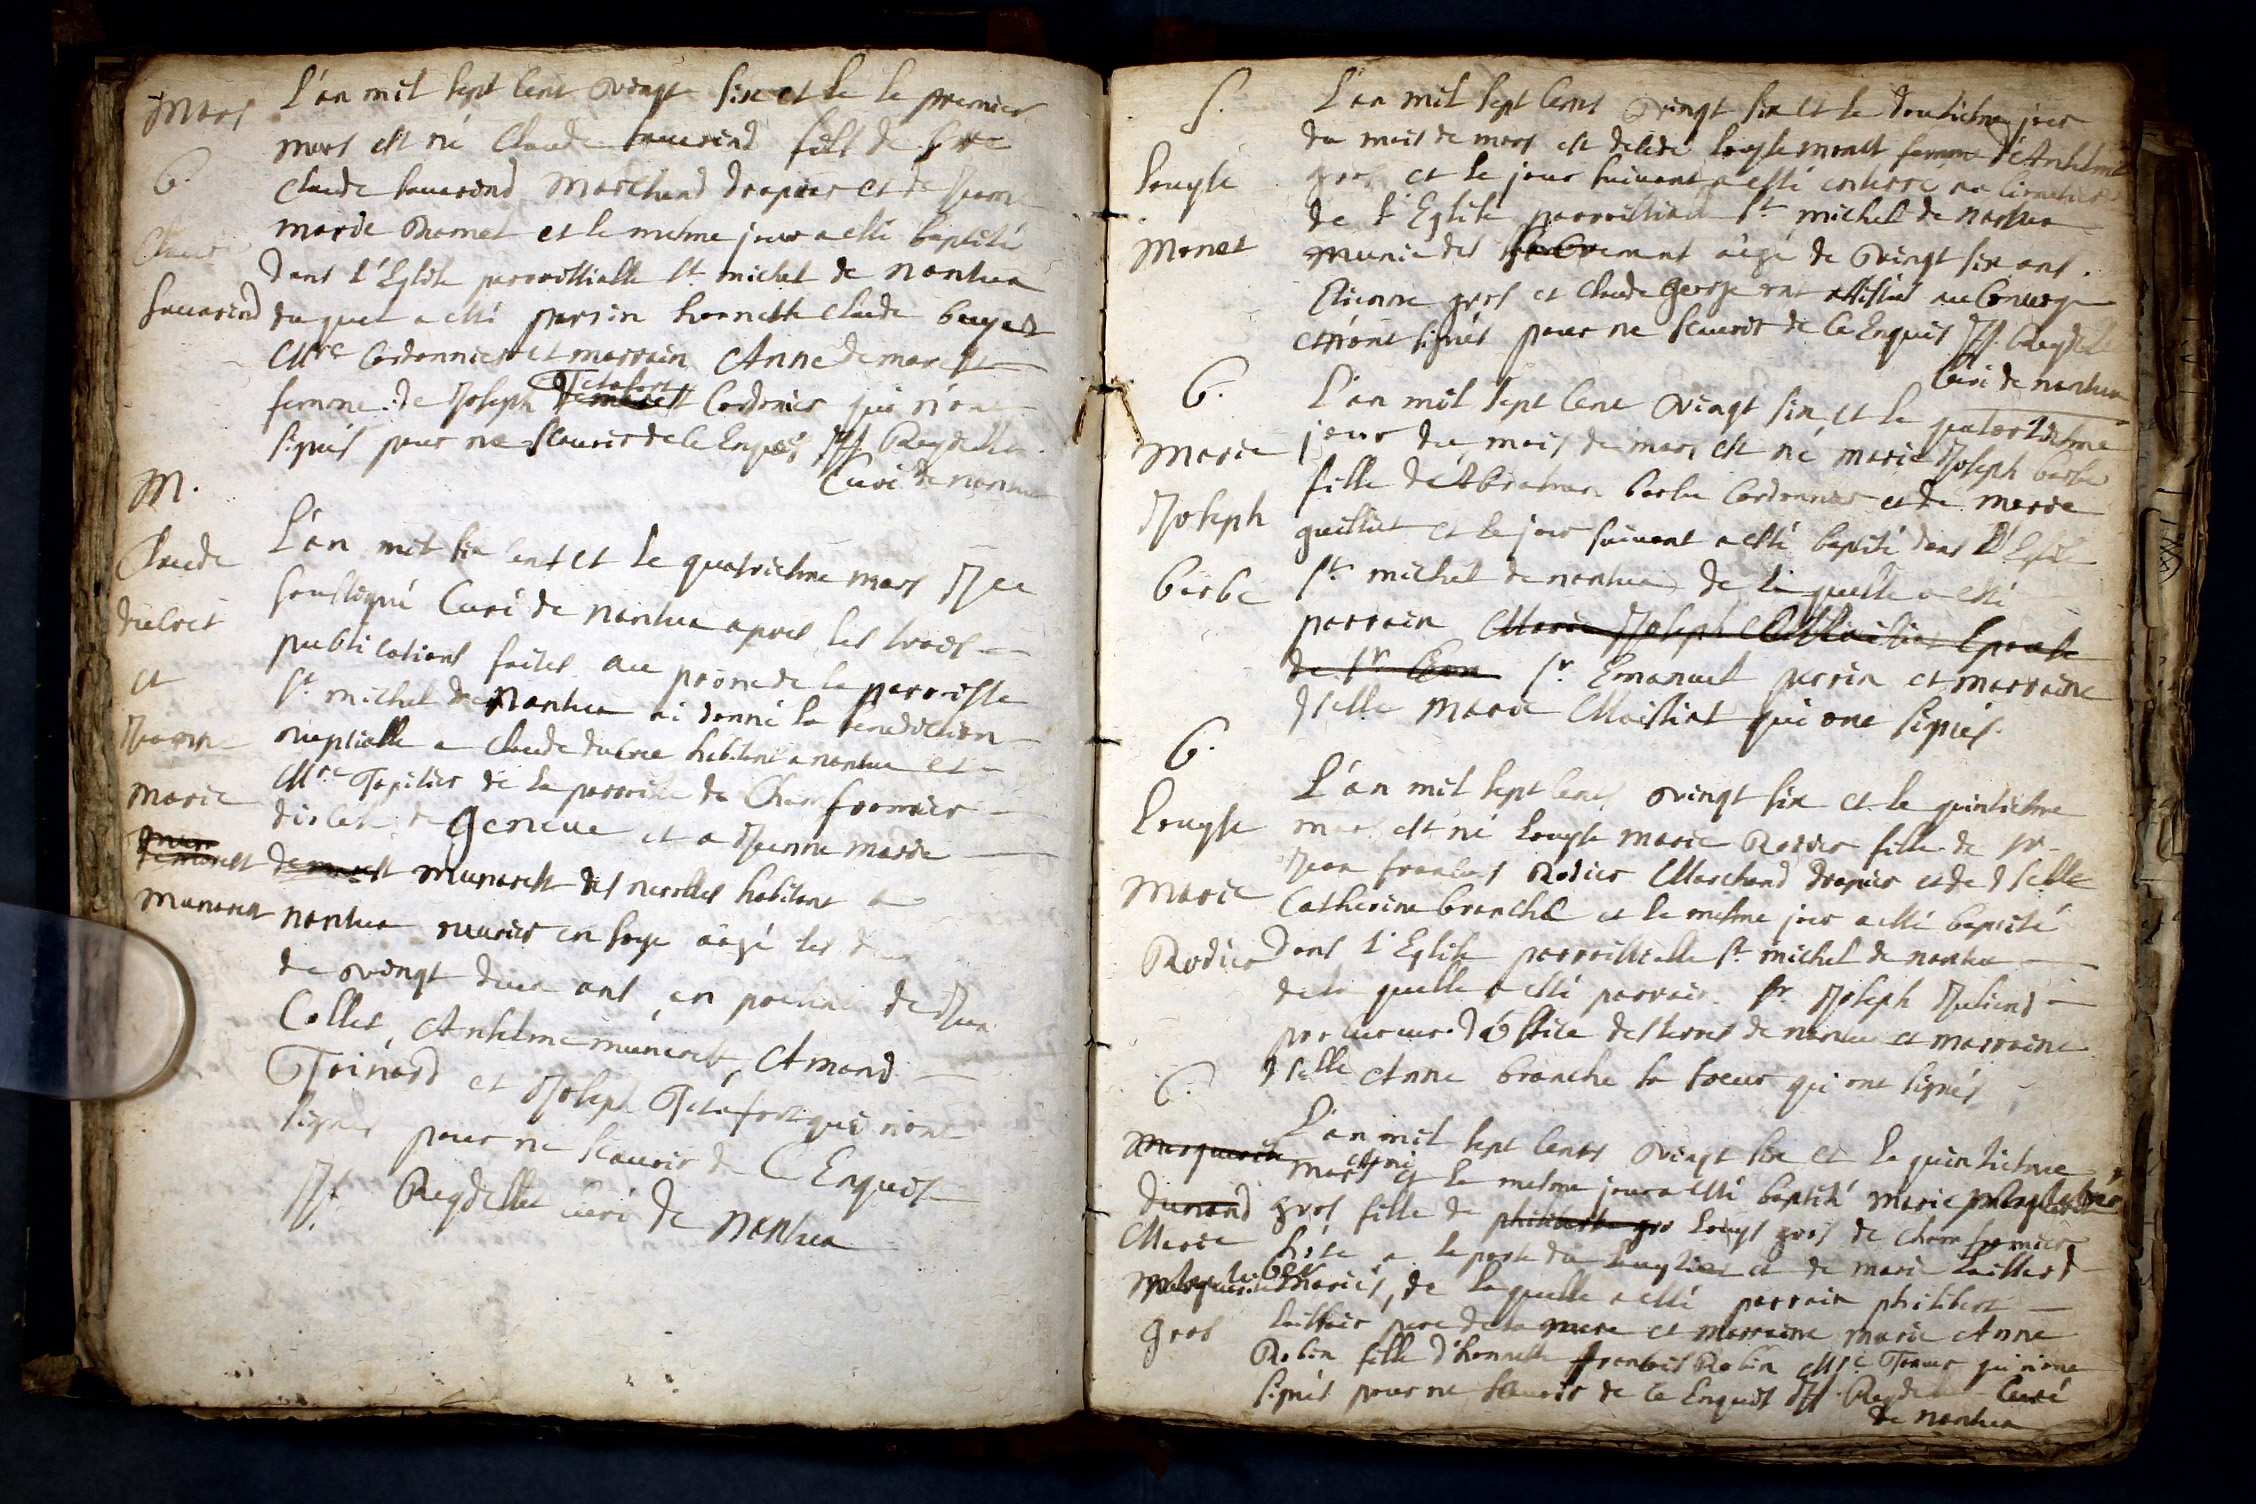 Mars
B.
Claude
Sauarind
L'an mil sept cent vingt six et le le premier
mars est né Claude Sauarind fils de
Claude Sauarind Marchand drapier et de Jeanne
marie et le mesme jour a esté baptisé
dans l'Eglise parroissialle St. michel de nantua
du quel a esté parrin honneste Claude
Mre Cordonnier et marrain Anne demarest
femme de Joseph Tetafort demarest Cordonier qui n'ont
signés pour ne scauoir de ce Enquis JJ Reydellet
Curé de nantua
M.
Claude
ducret
et
Jeanne
marie
demarest
munaret
L'an mil six cent et le quatriesme mars Je
soussigné Curé de nantua apres les trois
publications faites au prone de la parroisse
St. michel de Nantua ai donné la benediction
nuptialle a Claude ducret habitant a nantua et
Mre Tapissier de la parroisse de Chamfromier
diocese de Geneue et a Jeanne marie
demarest munarest des nerolles habitant a
nantua ouurier en soye aagé les deux
de vingt deux ans en presence de Jean
Collet, Anthelme munaret, Amand
Toinard et Joseph Tetafort qui n'ont
signés pour ne scauoir de ce Enquis
JJ. Reydellet curé de nantua
S.
Louyse
Monet
L'an mil sept cent vingt six et le douziesme jour
du mois de mars est decede Louyse monet femme d'Anthelme
gros et le jour suiuant a esté enterré au cimetier
de l'Eglise parroissiale St. michel de nantua
munie des sacrement aigé de vingt six ans.
Etienne gros et Claude George ont assistés au Conuoy
et n'ont signés pour ne scauoir de ce Enquis JJ. Reydellet
Curé de nantua
B.
Marie
Joseph
barbe
L'an mil sept cent vingt six et le quatorziesme
jour du mois de mars est né marie Joseph barbe
fille de Abraham barbe Cordonnier et de marie
guilliet et le jour suiuant a esté baptisé dans l'Eglise
St. michel de nantua de la quelle a esté
parrain Marie Joseph Maissiat Epouse
de Sr Sr. Emanuel perrin et marraine
dselle marie Maissiat qui ont signés.
B.
Louyse
Marie
Rodier
L'an mil sept cent vingt six et le quinziesme
mars est né Louyse marie Rodier fille de Sr.
Jean francois Rodier Marchand drapier et de dselle
Catherine branche et le mesme jour a esté baptisé
dans l'Eglise parroissialle St. michel de nantua
de la quelle a esté parrain Sr. Joseph Juliend
procureur d'office des terres de nantua et marraine
dselle Anne branche sa soeur qui ont signés
B.
Marguerite
durand
Marie
gros
L'an mil sept cents vingt six et le quinziesme
mars est né et le mesme jour a esté baptisé marie
gros fille de philiberte gros Louys gros de chamfromier
a la porte du et de marie Laillard
mariés, de laquelle a esté parrain philibert
pere de la mere et marraine marie Anne
Robin fille d'honneste francois Robin Mre qui n'ont
signés pour ne scauoir de ce Enquis JJ. Reydellet Curé
de nantua